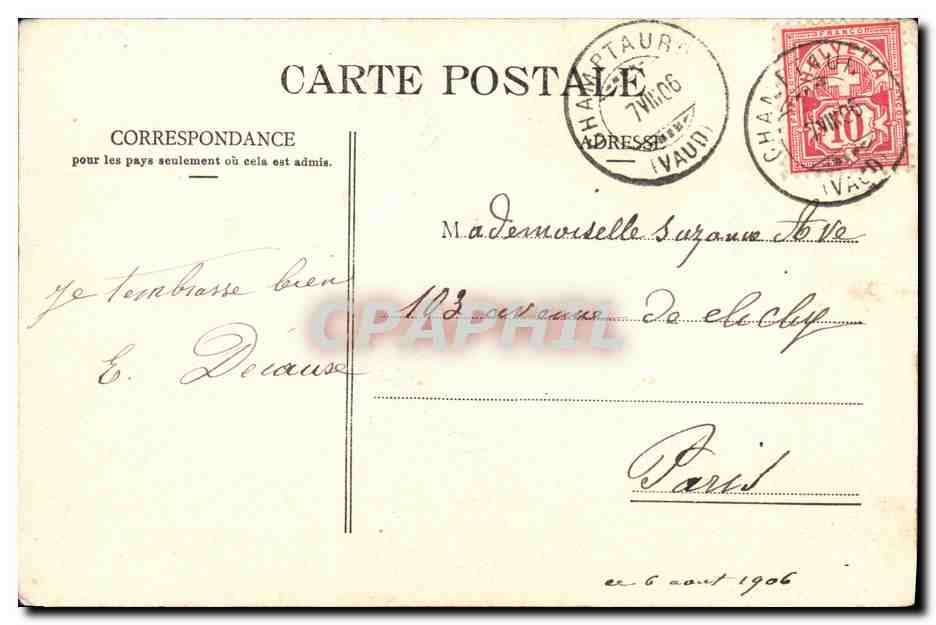 CARTE POSTALE
CORRESPONDANCE
pour les pays seulement où cela est admis.
ADRESSE
CHAMPTAUROZ
7 VIII 06
(VAUD)
FRANCO
HELVETIA
10
7 VIII 06
(VAUD)
Mademoiselle Suzanne
103 avenue de clichy
Paris
je t'embrasse bien
E.
CPAPHIL
ce 6 aout 1906